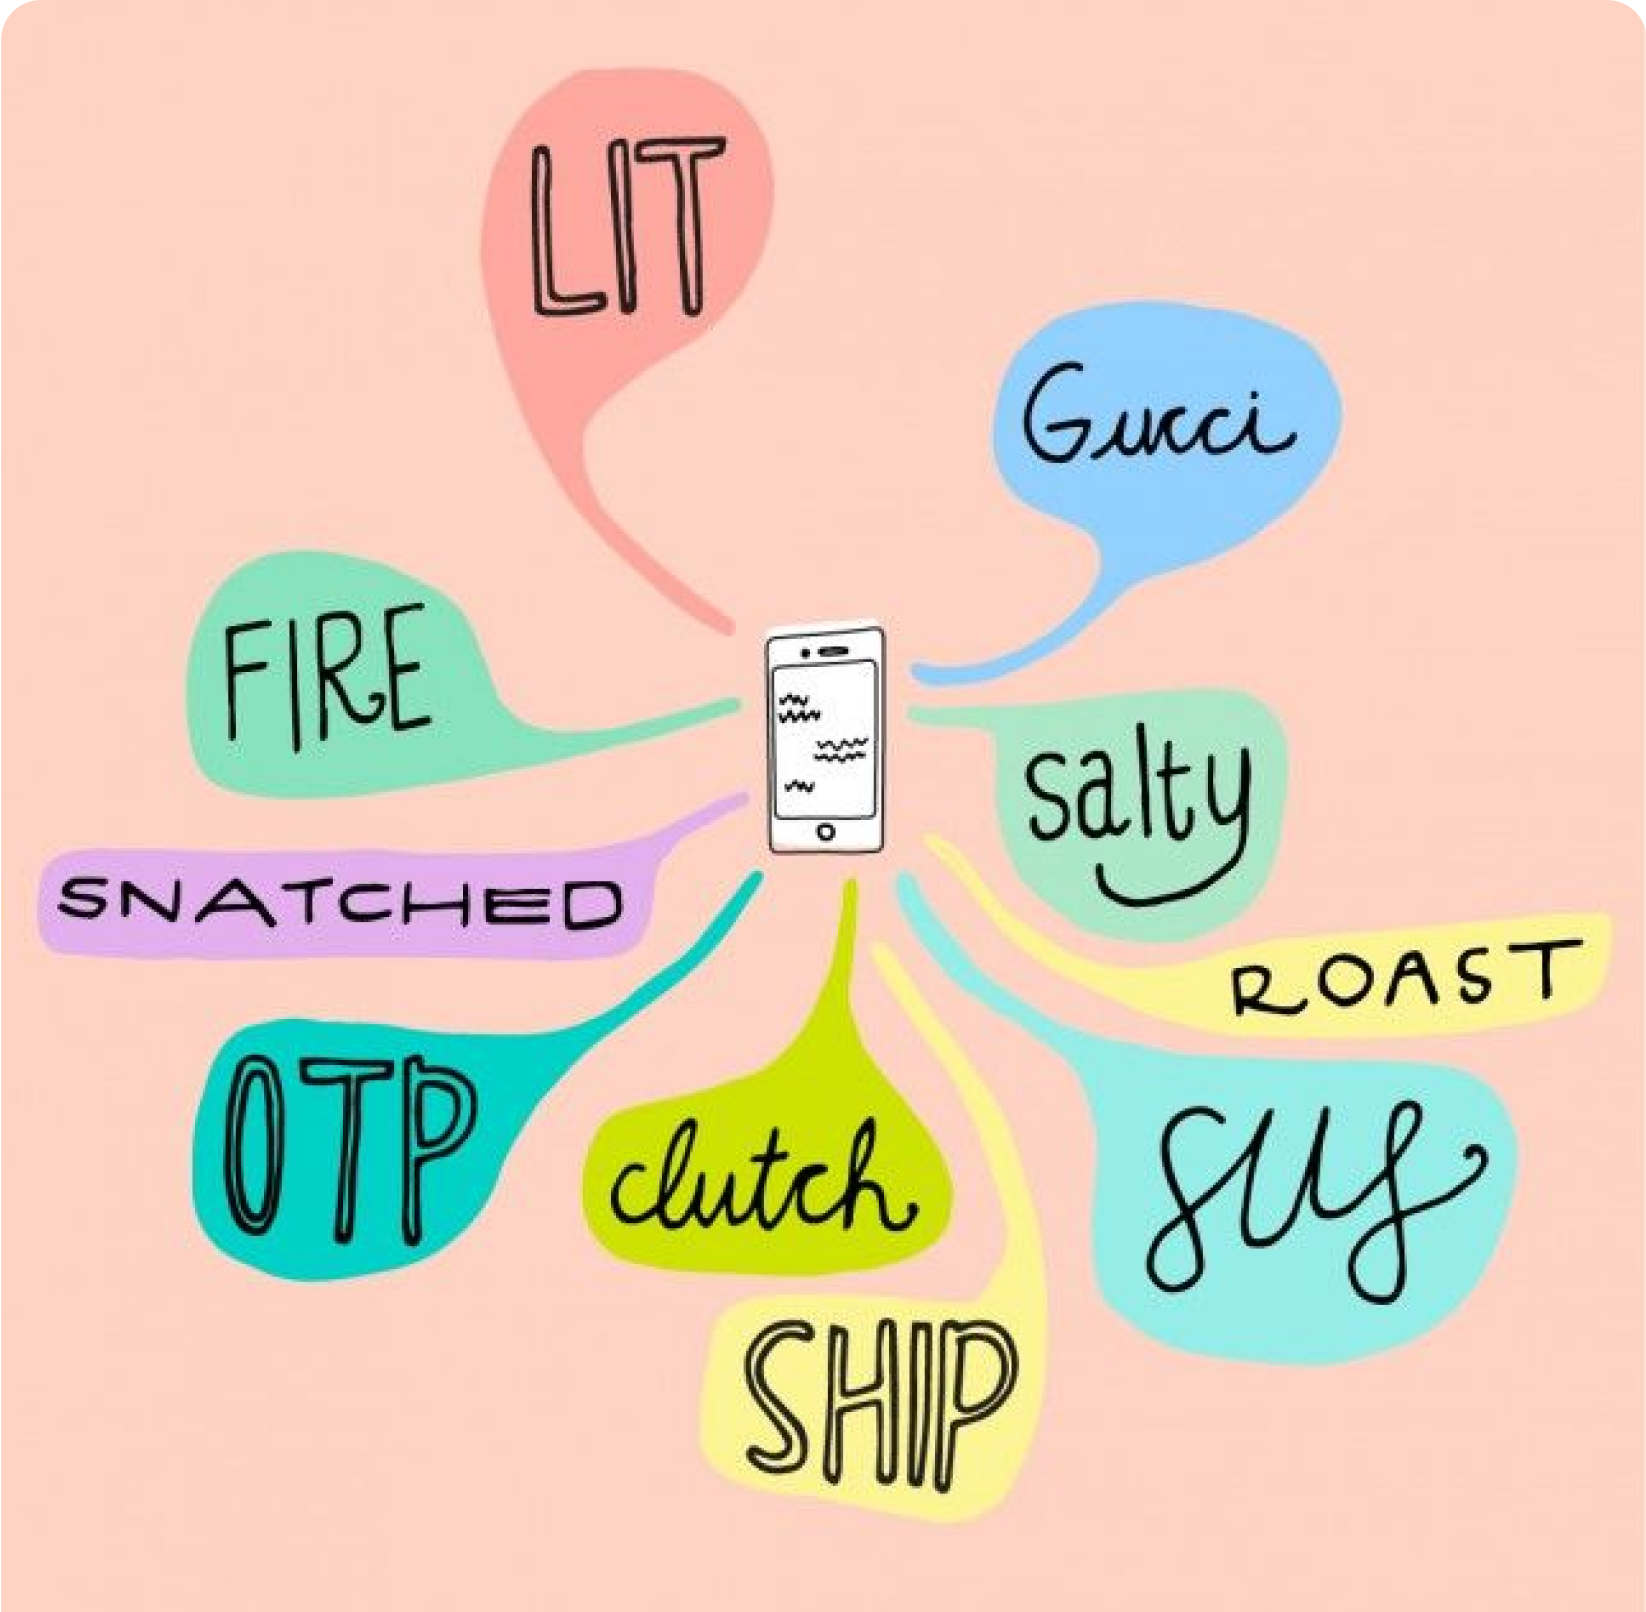 LIT
Gucci
FIRE
salty
SNATCHED
ROAST
OTP
clutch
sus
SHIP